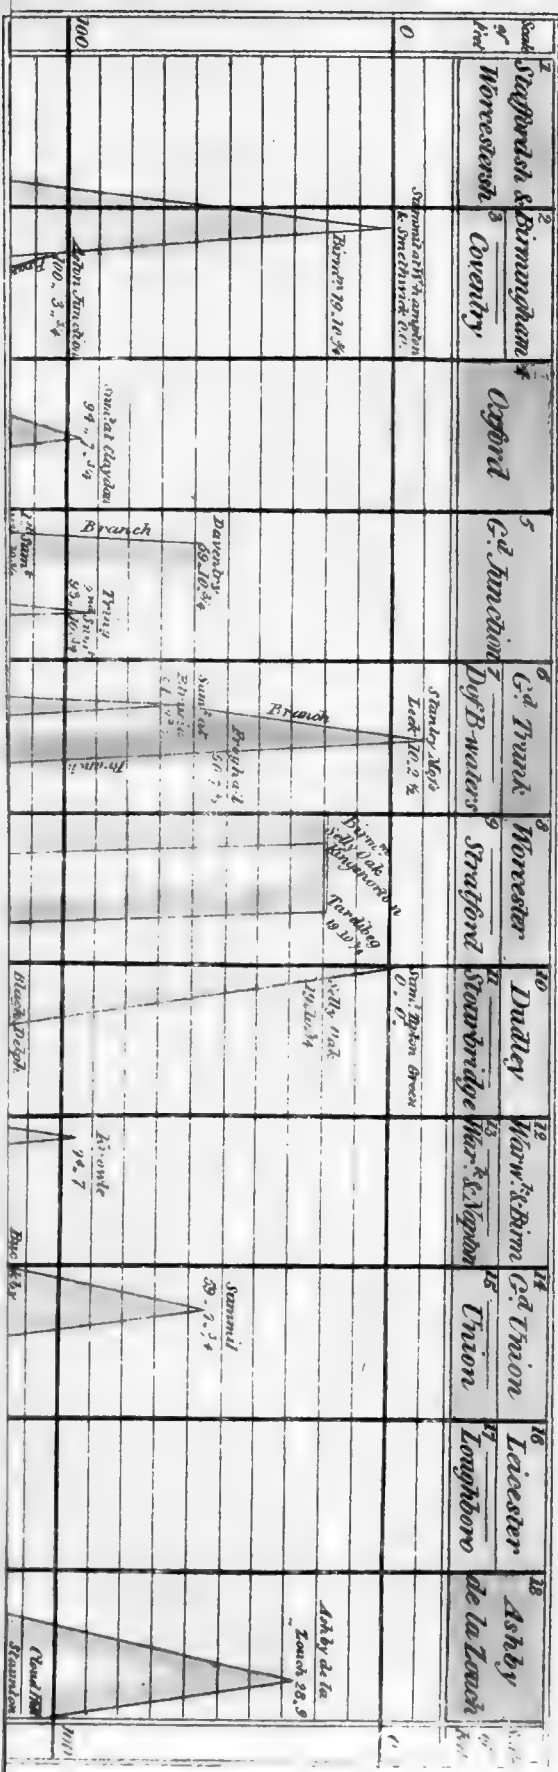 Scale
of
Feet
0
100
1
Staffordsh &
Worcestersh
2
Birmingham
3
Coventry
4
Oxford
5
Gd. Junction
6
Gd. Trunk
7
8
Worcester
9
Stratford
10
Dudley
11
Stourbridge
12
Warwk. & Birm
13
Wark. & Napton
14
Gd. Union
15
Union
16
Leicester
17
Loughboro
18
Ashby
de la Zouch
Smethwick 0.0.
Birmm. 19.10 ¾
Aston Junction
100 . 3 . ¾
Sumt. at Claydon
94 . 7 . ¾
Branch
Daventry
59 . 10 . ¾
Tring
Stanley Moss
Leek 10.2 ½
Branch
Birmm.
Selly Oak
Kingsnorton
Tardebeg
19 10 ¾
Sumt. Tipton Green
0 . 0
Selly Oak
19 . 10 . ¾
Black Delph
Knowle
94 . 7
Summit
59 . 7 . ¾
Ashby de la
Zouch 28.9
Cloud Hill
Staunton
100